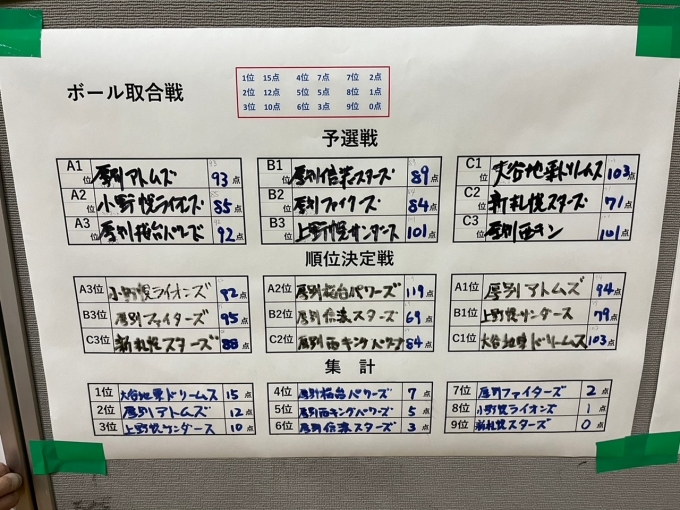 ボール取合戦
1位 15点 4位 7点 7位 2点
2位 12点 5位 5点 8位 1点
3位 10点 6位 3点 9位 0点
予選戦
A1位 厚別アトムズ 93点 B1位 厚別信濃スターズ 89点 C1位 大谷地東ドリームス 103点
A2位 小野幌ライオンズ 85点 B2位 厚別ファイターズ 84点 C2位 新札幌スターズ 71点
A3位 厚別桜台パワーズ 92点 B3位 上野幌サンダース 101点 C3位 厚別西キン 101点
順位決定戦
A3位 小野幌ライオンズ 82点 A2位 厚別桜台パワーズ 119点 A1位 厚別アトムズ 94点
B3位 厚別ファイターズ 95点 B2位 厚別信濃スターズ 69点 B1位 上野幌サンダース 79点
C3位 新札幌スターズ 88点 C2位 厚別西キングパワーズ 84点 C1位 大谷地東ドリームス 103点
集計
1位 大谷地東ドリームス 15点 4位 厚別桜台パワーズ 7点 7位 厚別ファイターズ 2点
2位 厚別アトムズ 12点 5位 厚別西キングパワーズ 5点 8位 小野幌ライオンズ 1点
3位 上野幌サンダース 10点 6位 厚別信濃スターズ 3点 9位 新札幌スターズ 0点